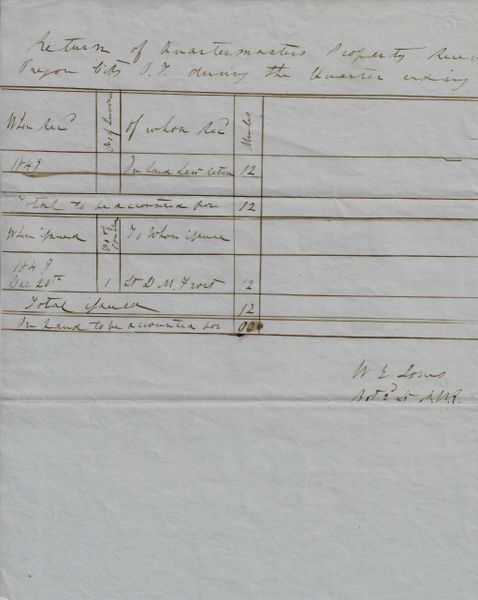 Return of Quartermasters Property Rece
Oregon City O.T. during the Quarter ending
When Recd No of Voucher of whom Recd Mules
1849 On hand last return 12
Total to be accounted for 12
When issued No of Voucher To Whom issued
1849
Dec 20th 1 Lt D. M. Frost 12
Total issued 12
On hand to be accounted for 00
W E Jones
Bvt 2d Lt M.R.